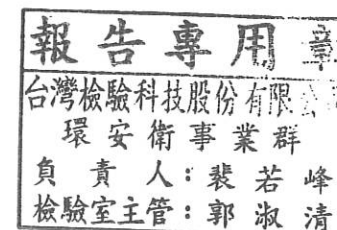 報告專用章
台灣檢驗科技股份有限公
環安衛事業群
負責人：裴若峰
檢驗室主管：郭淑清